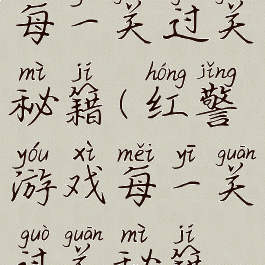 每一关过关
mì jí hóng jǐng
秘籍(红警
yóu xì měi yī guān
游戏每一关
guò guān mì jí
过关秘籍